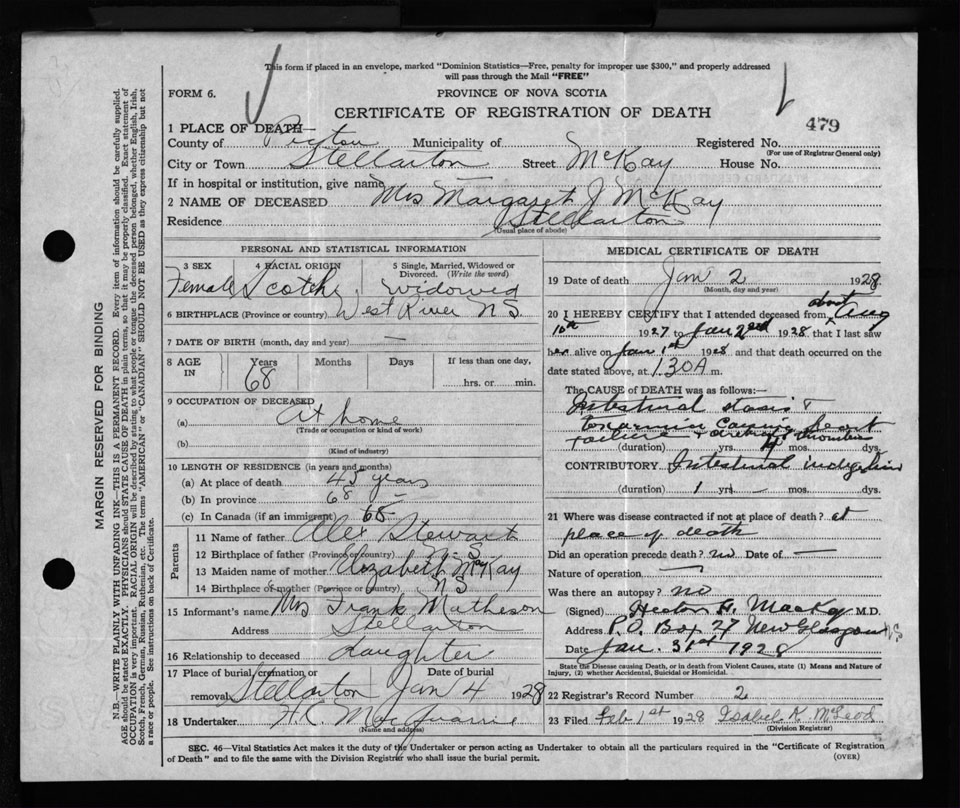 This form if placed in an envelope, marked "Dominion Statistics—Free, penalty for improper use $300," and properly addressed
will pass through the Mail "FREE"
FORM 6.
PROVINCE OF NOVA SCOTIA
CERTIFICATE OF REGISTRATION OF DEATH
479
1 PLACE OF DEATH
County of Pictou Municipality of Registered No.
(For use of Registrar General only)
City or Town Stellarton Street McKay House No.
If in hospital or institution, give name —
2 NAME OF DECEASED Mrs Margaret J McKay
Residence Stellarton
(Usual place of abode)
PERSONAL AND STATISTICAL INFORMATION
3 SEX 4 RACIAL ORIGIN 5 Single, Married, Widowed or Divorced. (Write the word)
Female Scotch widowed
6 BIRTHPLACE (Province or country) West River N S.
7 DATE OF BIRTH (month, day and year) —
8 AGE IN Years Months Days If less than one day,
68 hrs. or min.
9 OCCUPATION OF DECEASED
(a) At home
(Trade or occupation or kind of work)
(b)
(Kind of industry)
10 LENGTH OF RESIDENCE (in years and months)
(a) At place of death 45 years
(b) In province 68 —
(c) In Canada (if an immigrant) 68
Parents
11 Name of father Alex Stewart
12 Birthplace of father (Province or country) N S
13 Maiden name of mother Elizabeth McKay
14 Birthplace of mother (Province or country) N S
15 Informant's name Mrs Frank Matheson
Address Stellarton
16 Relationship to deceased daughter
17 Place of burial, cremation or removal Date of burial
Stellarton Jan 4 1928
18 Undertaker
(Name and address)
MEDICAL CERTIFICATE OF DEATH
19 Date of death Jan 2 1928
(Month, day and year)
20 I HEREBY CERTIFY that I attended deceased from about Aug
10th 1927 to Jan 2nd 1928 that I last saw
her alive on Jan 1st 1928 and that death occurred on
date stated above, at 1.30 A m.
The CAUSE of DEATH was as follows:—
Intestinal stasis &
causing heart
failure
(duration) yrs. mos. dys.
CONTRIBUTORY. Intestinal indigestion
(duration) 1 yrs. — mos. dys.
21 Where was disease contracted if not at place of death? at
place of death
Did an operation precede death? no Date of —
Nature of operation —
Was there an autopsy? no
(Signed) Hector H. MacKay M.D.
Address P.O. Box 27 New Glasgow NS
Date Jan. 31st 1928
State the Disease causing Death, or in death from Violent Causes, state (1) Means and Nature of
Injury, (2) whether Accidental, Suicidal or Homicidal.
22 Registrar's Record Number 2
23 Filed Feb 1st 1928 Isabel K. McLeod
(Division Registrar)
SEC. 46—Vital Statistics Act makes it the duty of the Undertaker or person acting as Undertaker to obtain all the particulars required in the "Certificate of Registration
of Death" and to file the same with the Division Registrar who shall issue the burial permit.
(OVER)
MARGIN RESERVED FOR BINDING
N.B.—WRITE PLAINLY WITH UNFADING INK—THIS IS A PERMANENT RECORD. Every item of information should be carefully supplied.
AGE should be stated EXACTLY. PHYSICIANS should STATE CAUSE OF DEATH in plain terms, so that it may be properly classified. Exact statement of
OCCUPATION is very important. RACIAL ORIGIN will be described by stating to what people or tongue the deceased person belonged, whether English, Irish,
Scotch, French, German, Russian, Ruthenian, etc. The terms "AMERICAN" or "CANADIAN" SHOULD NOT BE USED as they express citizenship but not
a race or people. See instructions on back of Certificate.